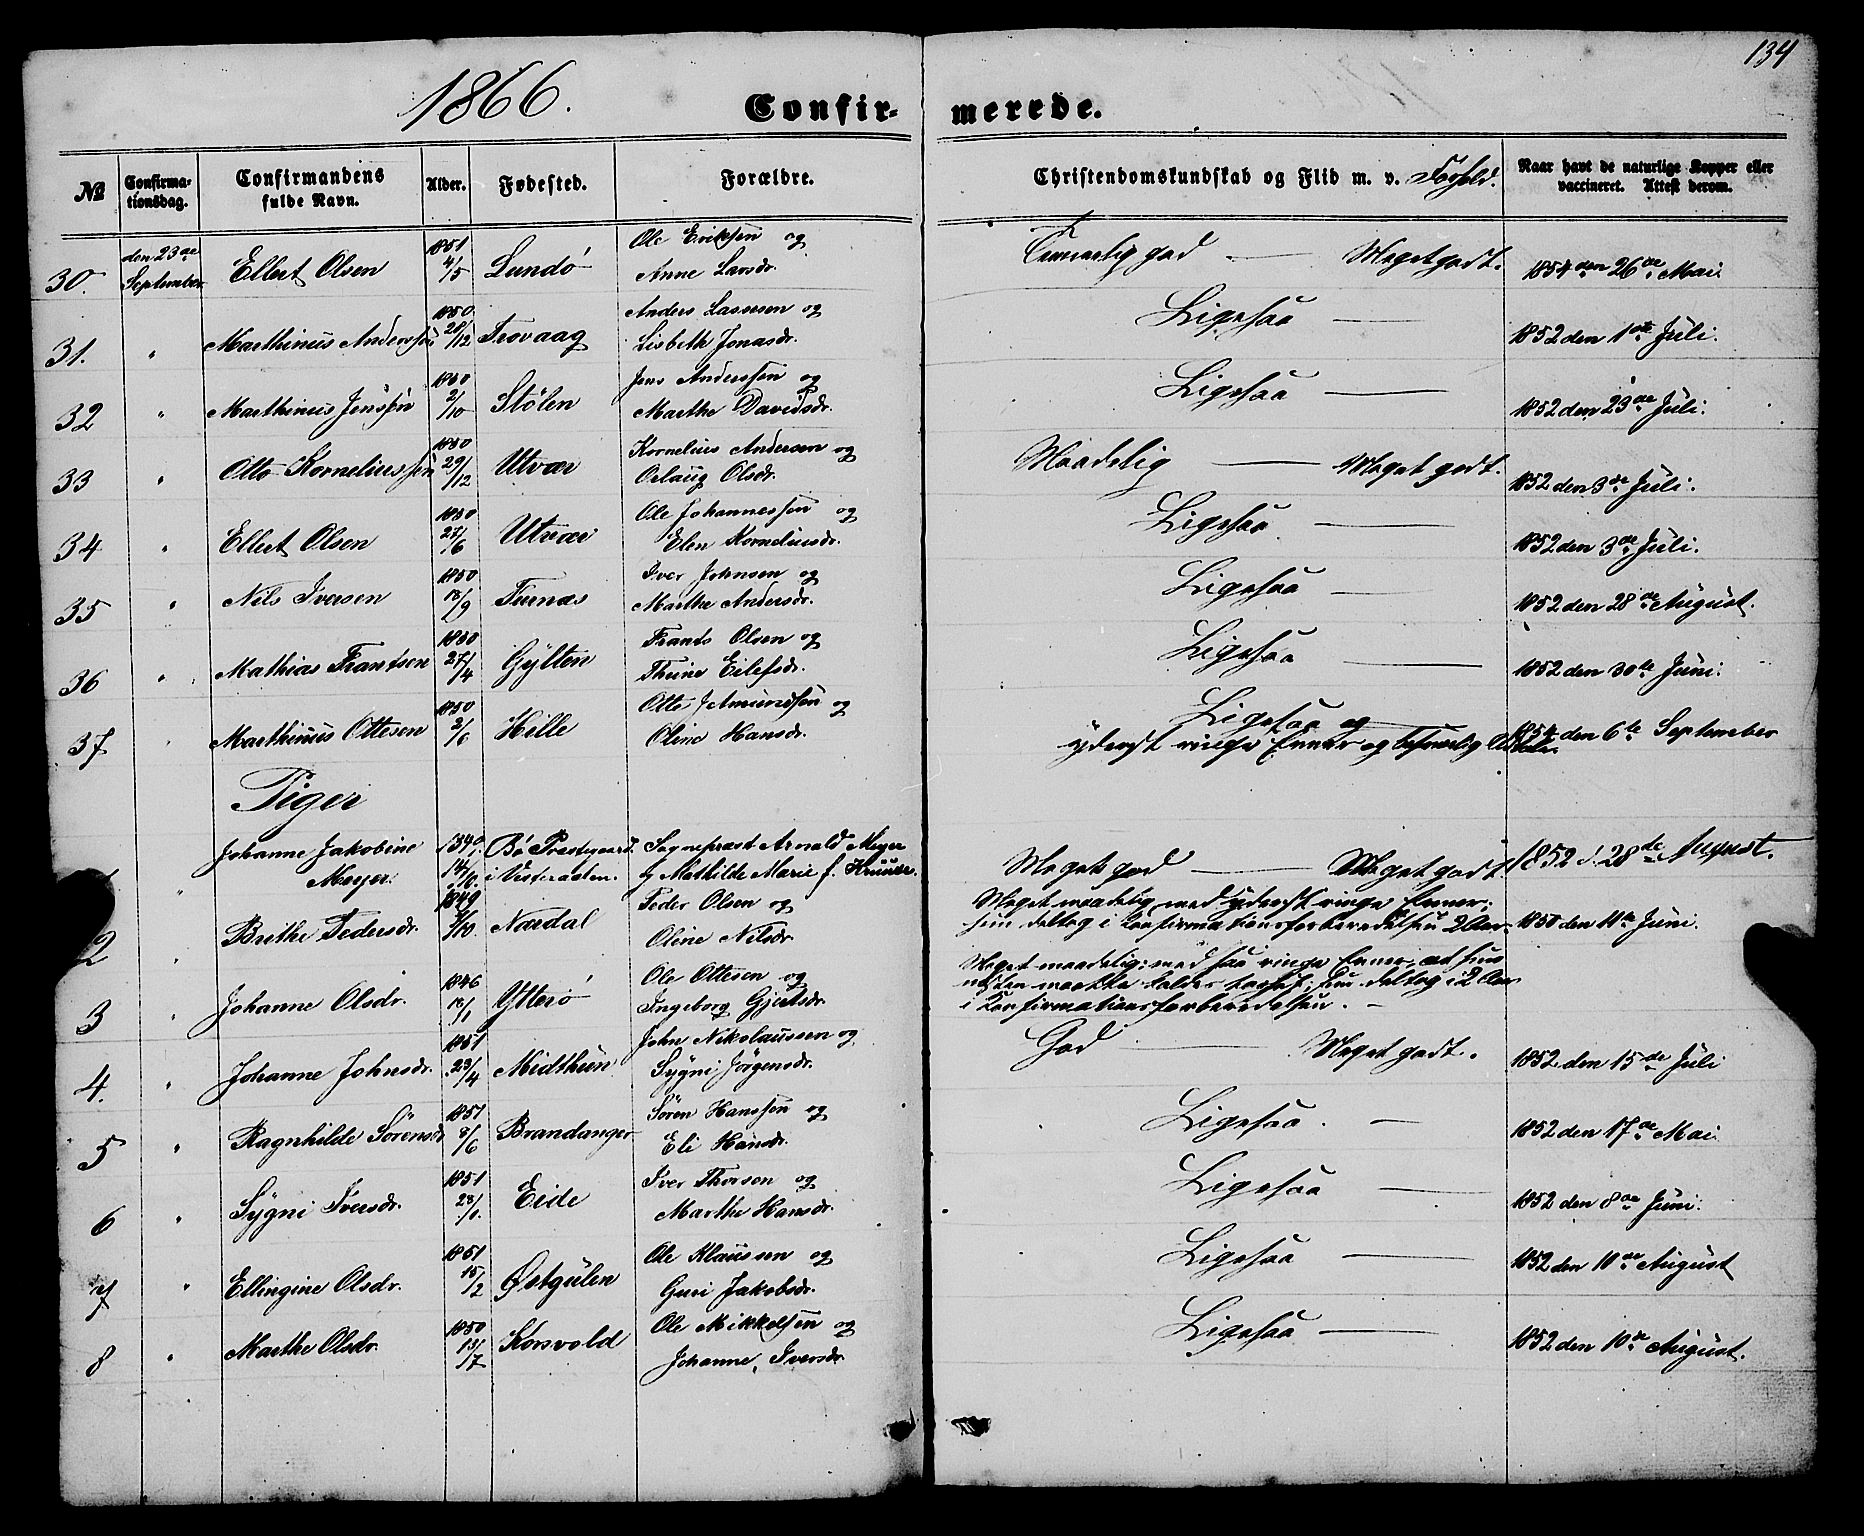 134
1866.
Confirmerede.
№ Confirmationsdag. Confirmandens fulde Navn. Alder. Fødested. Forældre. Christendomskundskab og Flid m. v. Forhold. Naar havt de naturlige Kopper eller vaccineret. Attest derom.
30. den 23de September Ellert Olsen 1851 4/5 Lundø Ole Eriksen og Anne Larsdr. Temmelig god — Meget godt. 1854 den 26de Mai
31. " Marthinus Anderssen 1850 28/12 Trovaag Anders Lassesen og Lisbeth Jonasdr. Ligesaa — 1852 den 1ste Juli.
32 " Marthinus Jenssen 1850 2/10 Stølen Jens Anderssen og Marthe Davidsdr. Ligesaa — 1852 den 23de Juli.
33 " Otto Korneliussen 1850 29/12 Utvær Kornelius Andersen og Oelaug Olsdr. Maadelig — Meget godt. 1852 den 3de Juli.
34 " Ellert Olsen 1850 27/6 Utvær Ole Johannessen og Elen Korneliusdr. Ligesaa — 1852 den 3de Juli.
35 " Nils Iversen 1850 18/9 Furnæs Iver Johnsen og Marthe Andersdr. Ligesaa — 1852 den 28de August.
36 " Mathias Frantsen 1850 27/4 Gylten Frants Olsen og Thrine Eilefsdr. Ligesaa — 1852 den 30te Juni.
37 " Marthinus Ottesen 1850 2/6 Hille Otto Amundsen og Oline Hansdr. Ligesaa og yderst ringe Evner og 1854 den 6te September
Piger
" Johanne Jakobine Meyer. Bø Præstegaard i Vesteraalen. Sognepræst Arnold Meyer og Mathilde Marie f. Meget god — Meget godt. 1852 d. 28de August.
2 " Brithe Pedersdr. 1849 Nordal Peder Olsen og Oline Nilsdr. Meget maadelig, med yderst ringe Evner; hun deltog i Konfirmationsforberedelsen 2 Aar. 1850 den 11te Juni.
3 " Johanne Olsdr. 1846 18/1 Ytterø Ole Ottesen og Ingeborg Gjertsdr. Meget maadelig: med saa ringe Evner, at hun næsten maatte kaldes; hun deltog i 2 Aar i Konfirmationsforberedelsen. —
4. " Johanne Johnsdr. 1851 23/4 Midthun John Nikolaussen og Sygni Jørgensdr. God — Meget godt. 1852 den 15de Juli
5 " Ragnhilde Sørensdr 1851 8/6 Brandanger Søren Hanssen og Eli Hansdr. Ligesaa. — 1852 den 17de Mai
6 " Sygni Iversdr. 1851 28/1. Eide Iver Thorson og Marthe Hansdr. Ligesaa — 1852 den 8de Juni.
7 " Ellingine Olsdr. 1851 15/2 Østgulen Ole Klaussen og Guri Jakobsdr. Ligesaa — 1852 den 10de August
8 " Marthe Olsdr. 1850 13/7 Korsvold Ole Mikkelsen og Johanne Iversdr. Ligesaa — 1852 den 10de August.